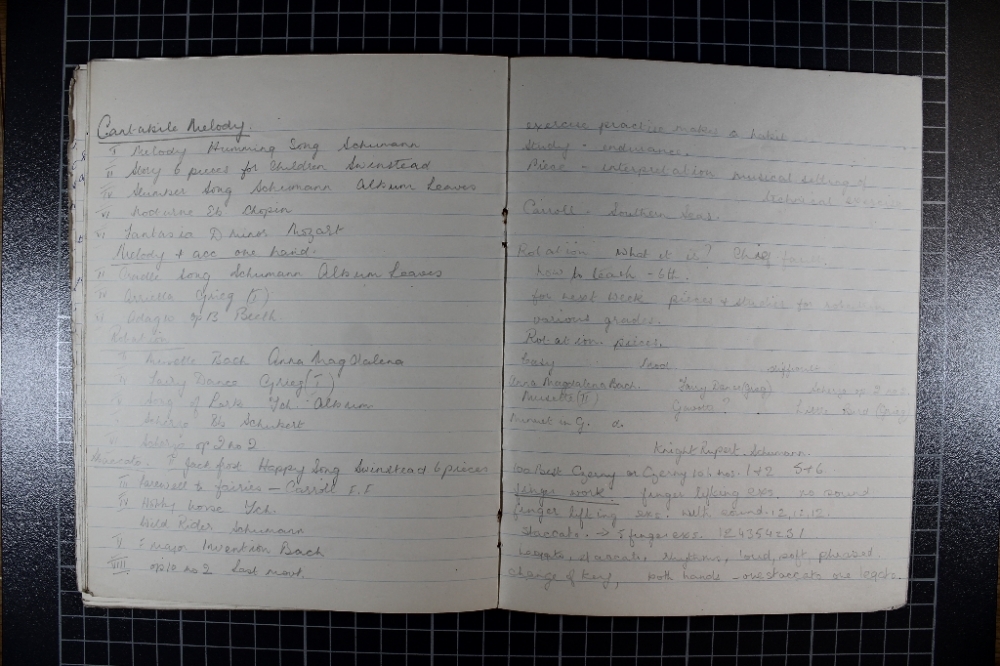 Cantabile Melody.
I Melody Humming Song Schumann
II Story 6 pieces for Children Swinstead
IV Slumber Song Schumann Album Leaves
VI Nocturne Eb Chopin
VI Fantasia D minor Mozart
Melody + acc one hand.
II Cradle Song Schumann Album Leaves
IV Arietta Grieg (I)
VI Adagio op 13 Beeth.
Rotation
II Musette Bach Anna Magdalena
IV Fairy Dance Grieg (I)
IV Song of Lark Tch. Album
Scherzo Bb Schubert
VI Scherzo op 2 no 2
Staccato. I fact first Happy Song Swinstead 6 pieces
III Farewell to fairies - Carroll
IV Hobby horse Tch.
Wild Rider Schumann
V F major Invention Bach
VIII op 10 no 2 Last movt.
exercise practice makes a habit
Study - endurance.
Piece - interpretation musical setting of
technical exercise
Carroll - Southern Seas.
Rotation what it is?
how to teach - 6th.
for next week pieces + studies for rotation
various grades.
Rotation pieces.
Easy difficult
Anna Magdalena Bach. Fairy Dance (Grieg) Scherzo op 2 no 2
Musette (II) Gavotte? Little Bird (Grieg)
Minuet in G. d.
Knight Rupert. Schumann.
100 Best Czerny or Czerny nos. 1+2 5+6
finger work. finger lifting exs. no sound
finger lifting exs. with sound. 12, 12, 12.
staccato. -> 5 finger exs. 124354231
legato, staccato, rhythms, loud, soft, phrased,
change of key, both hands - one staccato one legato.